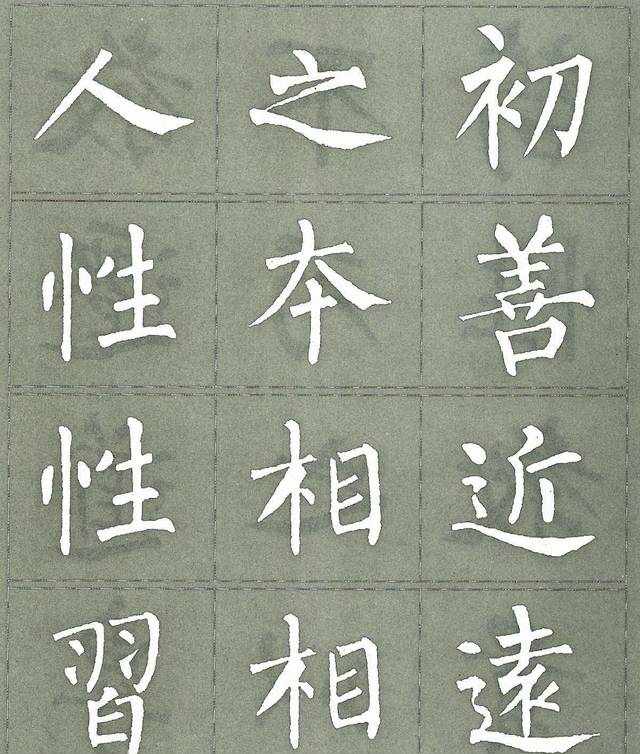 人之初
性本善
性相近
習相遠